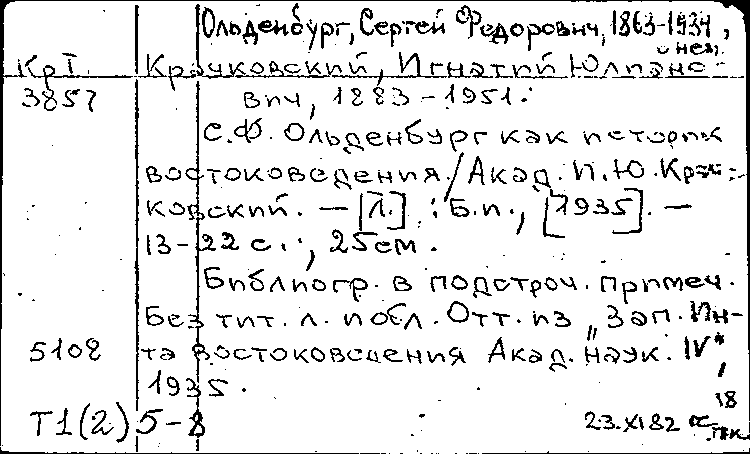 Ольденбург, Сергей Федорович, 1863-1934,
о нем.
Кр I. Крачковский, Игнатий Юлиано-
3857 вич, 1883-1951.
С.Ф. Ольденбург как историк
востоковедения. / Акад. И.Ю. Крач-
ковский. — [Л.] : Б.и., [1935]. —
13-22 с., 25см.
Библиогр. в подстроч. примеч.
Без тит. л. и обл. Отт. из „Зап. Ин-
5108 та востоковедения Акад. наук. IV",
1935.
18
Т1(2)5-8 23.XI82